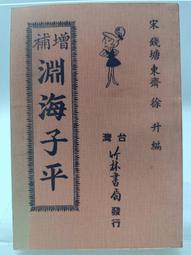 宋 錢塘東齋 徐升編
增補
淵海子平
台灣
竹林書局
發行